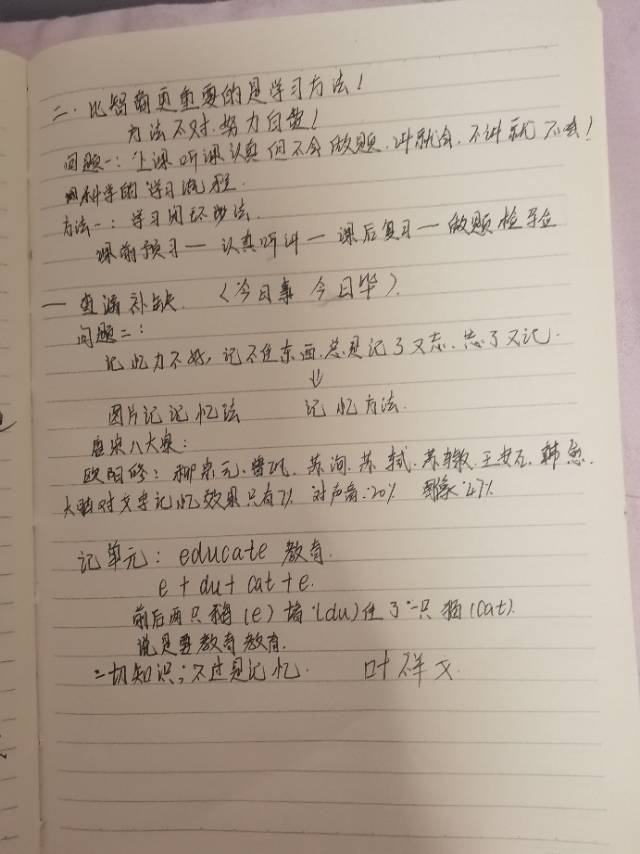 二.比智商更重要的是学习方法!
方法不对.努力白费!
问题一:上课听课认真但不会做题.讲就会.不讲就不会!
科学的学习流程.
方法一:学习闭环办法.
课前预习一认真听讲一课后复习一做题检导位
一查漏补缺.〈今日事 今日毕〉.
问题二:
记忆力不好,记不住东西.总是记了又忘.忘了又记.
⇓
图片记记忆法 记忆方法.
唐宋八大家:
欧阳修;柳宗元.曾巩.苏洵.苏轼.苏辙.王安石.韩愈.
大脑对文字记忆效果只有7% 对声音:20% 图像:47%
记单元:educate 教育.
e+du+cat+e.
前后两只鹅(e)堵(du)住了一只猫(cat).
说是要教育教育.
二切知识;不过是记忆. 叶祥文.